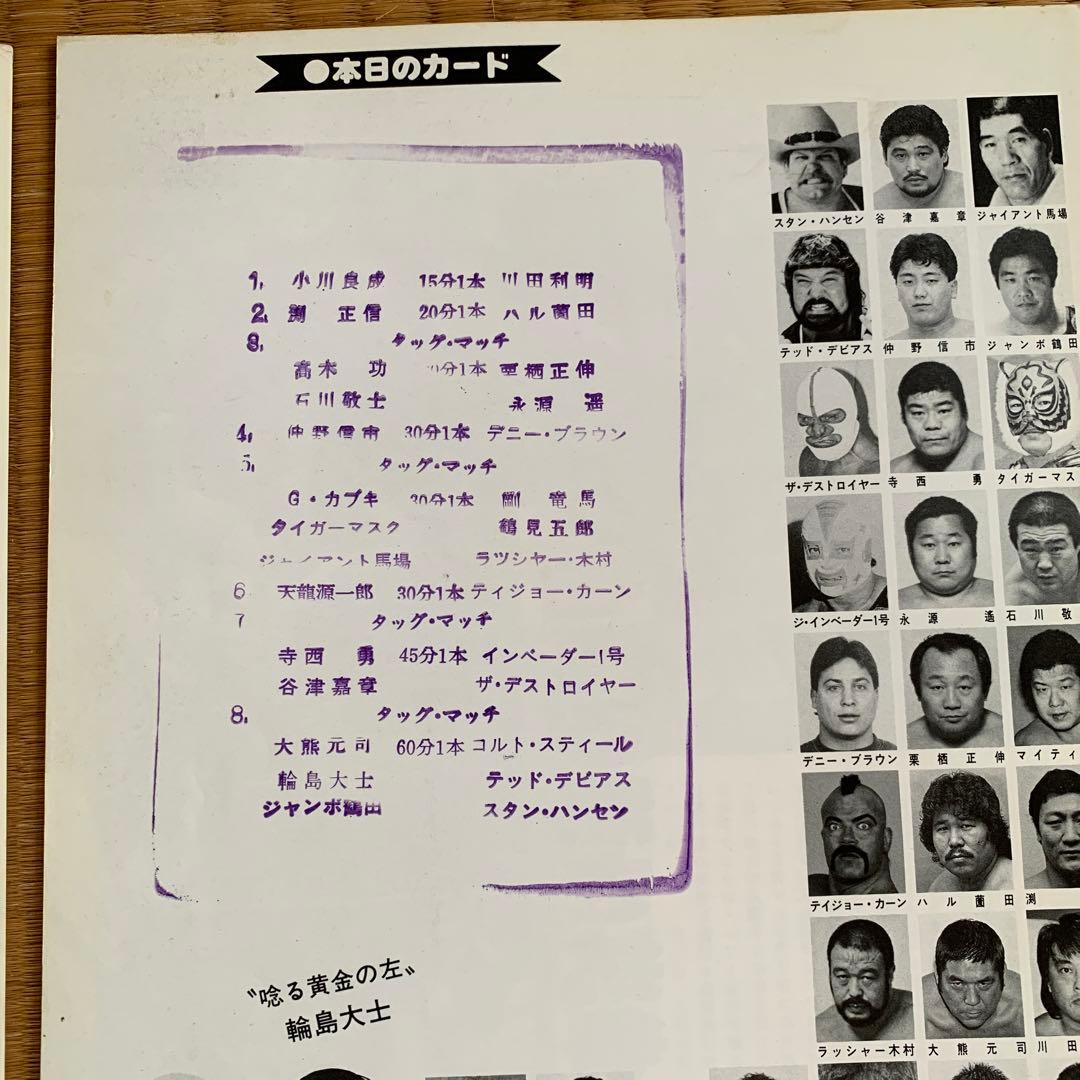 ●本日のカード
1. 小川良成 15分1本 川田利明
2. 渕 正信 20分1本 ハル薗田
3. タッグ・マッチ
高木 功 分1本 栗栖正伸
石川敬士 永源 遥
4. 仲野信市 30分1本 デニー・ブラウン
5. タッグ・マッチ
G・カブキ 30分1本 剛 竜馬
タイガーマスク 鶴見五郎
ジャイアント馬場 ラツシヤー・木村
6 天龍源一郎 30分1本 ティジョー・カーン
7 タッグ・マッチ
寺西 勇 45分1本 インベーダー1号
谷津嘉章 ザ・デストロイヤー
8. タッグ・マッチ
大熊元司 60分1本 コルト・スティール
輪島大士 テッド・デビアス
ジャンボ鶴田 スタン・ハンセン
〝唸る黄金の左〟
輪島大士
スタン・ハンセン 谷津嘉章 ジャイアント馬場
テッド・デビアス 仲野信市 ジャンボ鶴田
ザ・デストロイヤー 寺西勇 タイガーマス
ジ・インベーダー1号 永源遙 石川敬
デニー・ブラウン 栗栖正伸 マイティ
テイジョー・カーン ハル薗田 渕
ラッシャー木村 大熊元司 川田